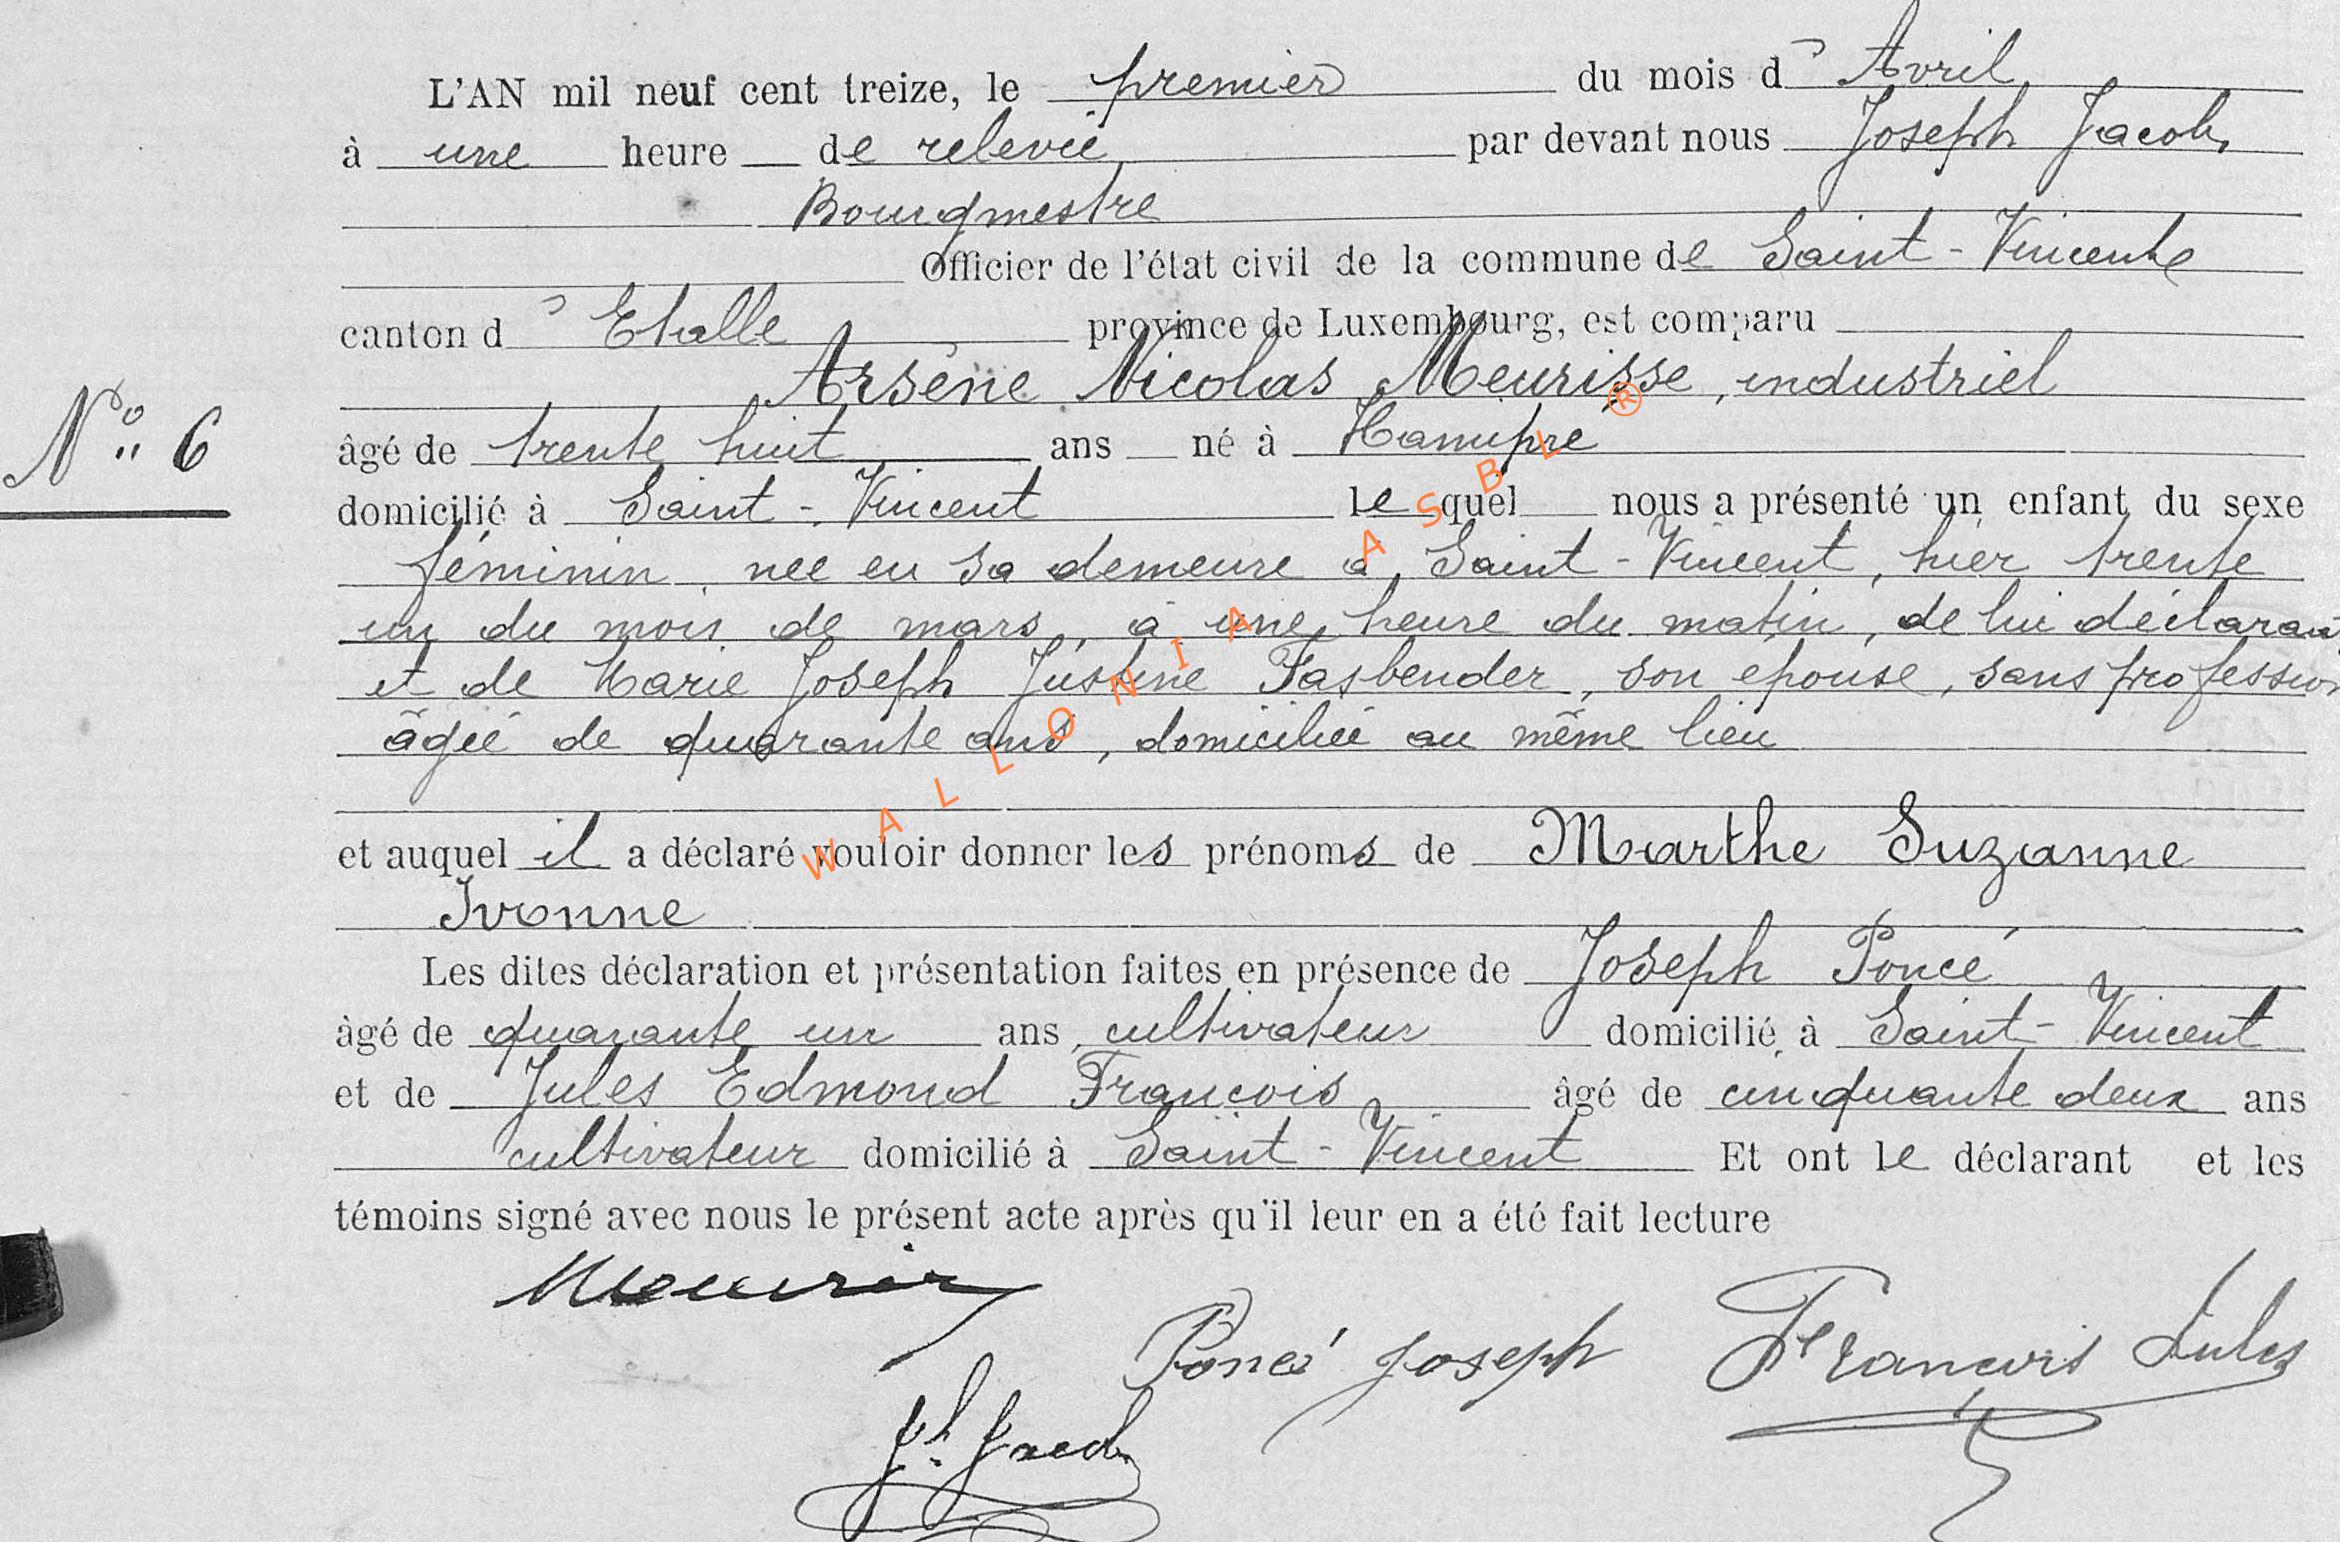 L'AN mil neuf cent treize, le premier du mois d'Avril
à une heure de relevée par devant nous Joseph Jacob,
Bourgmestre
Officier de l'état civil de la commune de Saint-Vincent
canton d'Etalle province de Luxembourg, est comparu
Arsène Nicolas Meurisse, industriel
N° 6
âgé de trente huit ans né à Hamipré
domicilié à Saint-Vincent lequel nous a présenté un enfant du sexe
féminin, née en sa demeure à Saint-Vincent, hier trente
un du mois de mars, à une heure du matin, de lui déclarant
et de Marie Joseph Justine Fasbender, son épouse, sans profession
âgée de quarante ans, domiciliée au même lieu
et auquel il a déclaré vouloir donner les prénoms de Marthe Suzanne
Ivonne
Les dites déclaration et présentation faites en présence de Joseph Poncé
âgé de quarante un ans, cultivateur domicilié à Saint-Vincent
et de Jules Edmond François âgé de cinquante deux ans
cultivateur domicilié à Saint-Vincent Et ont le déclarant et les
témoins signé avec nous le présent acte après qu'il leur en a été fait lecture
Poncé Joseph François Jules
Jh. Jacob
WALLONIA ASBL ®